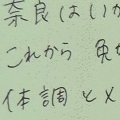 奈良はいか
これから
体調とメ